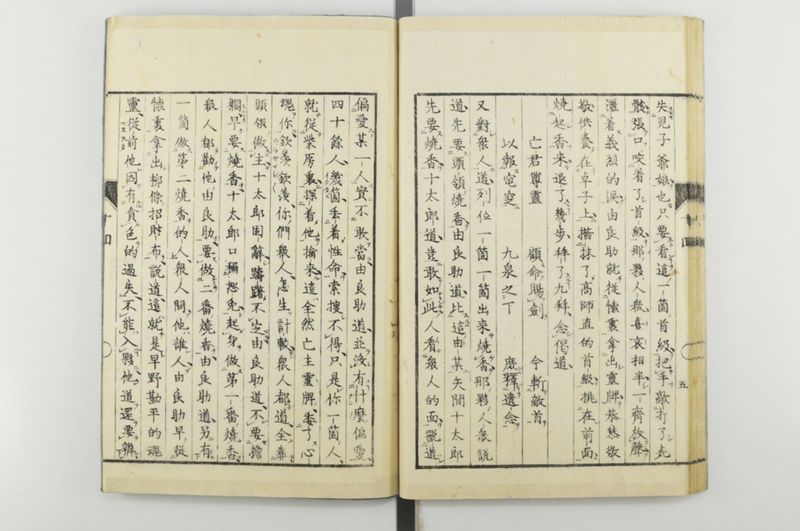 失兒子爺孃也只要看這一箇首級把手敲打了
骸張口咬着了首級那夥人衆喜哀相半一齊放聲
灑着義烈的淚由良助就從懷裏拿出靈牌恭恭敬
敬供養在卓子上揩抹了高師直的首級排在前面
燒起香來退了幾步拜了九拜念偈道
亡君尊靈　顧命賜劍　今斬敵首
以報　九泉之下　庶釋遺念
又對衆人道列位一箇一箇出來燒香那夥人衆説
道先要頭領燒香由良助道比這由某矢間十太郎
先要燒香十太郎道豈敢如此人看衆人的面說道
五
偏愛某一人實不敢當由良助道並沒有什麼偏愛
四十餘人衆箇丢着性命索搜不得只是你一箇人
就從柴房裏探着他揄來這全然亡主靈牌委了心
塊你欽羨欽羨你們衆人怎生計較衆人都道全靠
頭領做主十太郎固辭躊躇不定由良助道不要擔
擱早要燒香十太郎口稱恕免起身做第一番燒香
衆人都勸他由良助要做二番燒香由良助道另有
一箇做第二燒香的人衆人問他誰人由良助早從
懷裏拿出那條招財布說道這就是早野勘平的魂
靈從前他因有貪色的過失不能入夥他道還要辨
十四